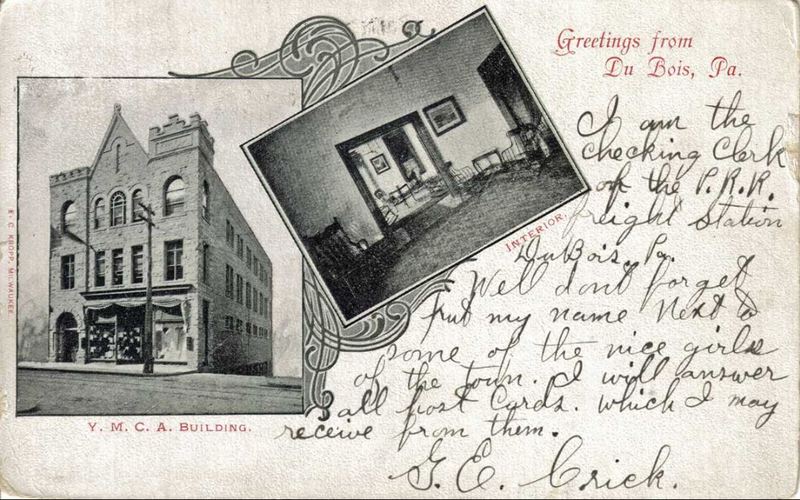 Greetings from
Du Bois, Pa.
I am the
checking Clerk
of the P.R.R.
freight Station
DuBois, Pa.
Well dont forget
put my name next to
some of the nice girls
of the town. I will answer
all post Cards. which I may
receive from them.
G. E. Crick.
INTERIOR.
Y. M. C. A. BUILDING.
E. C. KROPP, MILWAUKEE